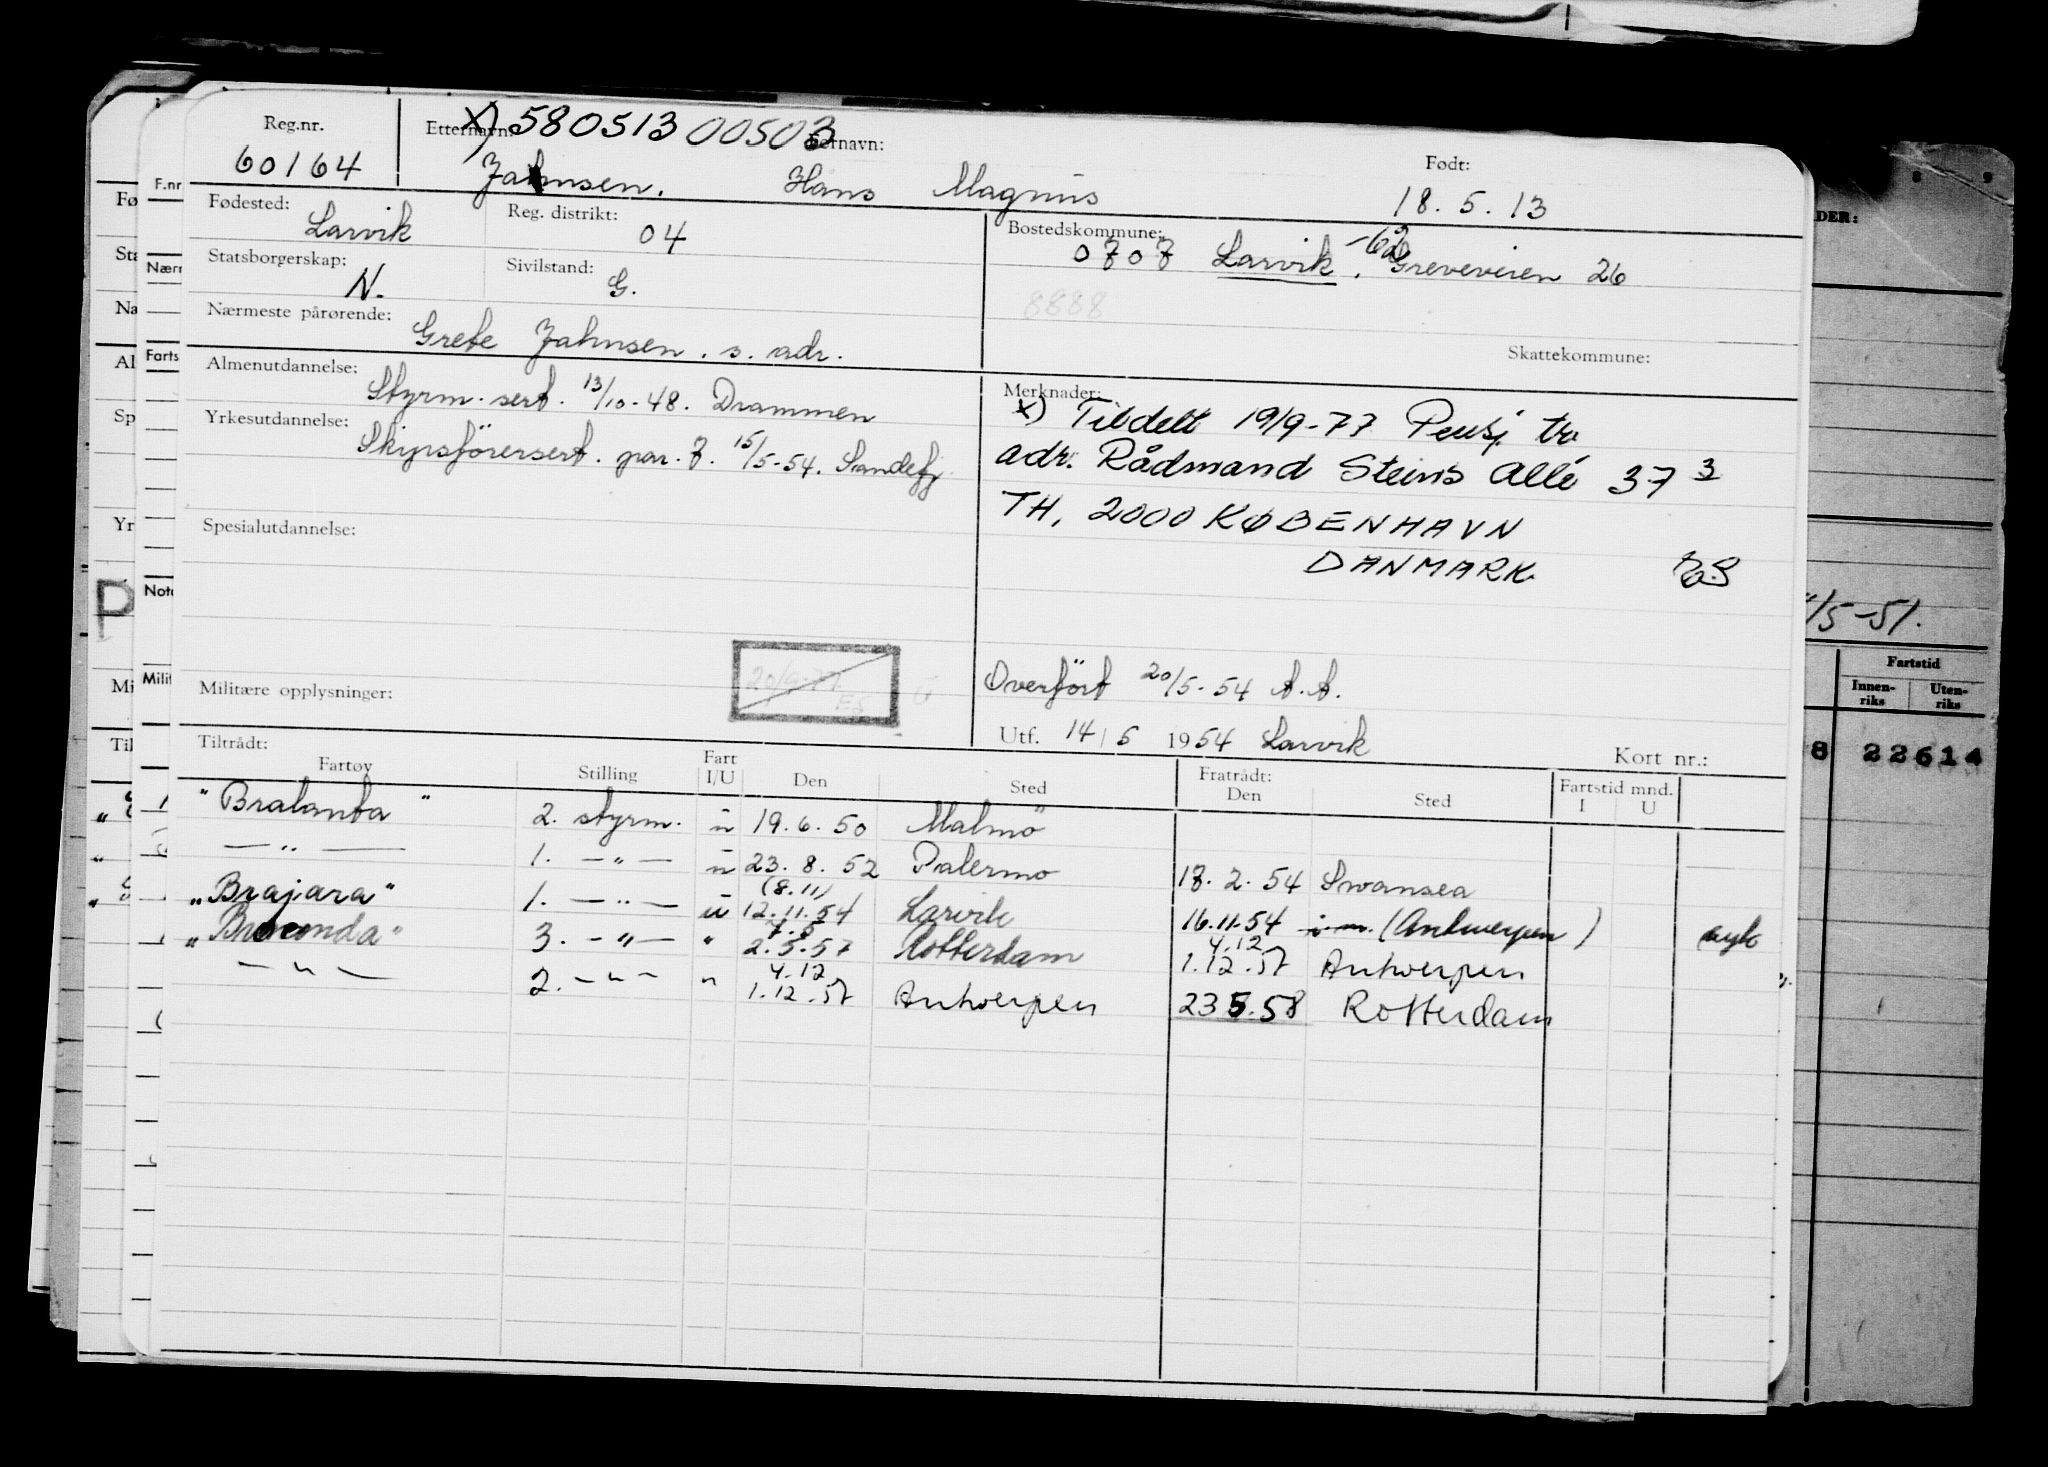 Reg.nr. Etternavn: x) 580513 00503 Fornavn: Født:
60164 Jahnsen. Hans Magnus 18.5.13
Fødested: Larvik Reg. distrikt: 04 Bostedskommune: -62
0707 Larvik. Greveveien 26
Statsborgerskap: N. Sivilstand: G.
8888
Nærmeste pårørende: Grete Jahnsen. s. adr.
Skattekommune:
Almenutdannelse: Styrm. sert. 13/10-48. Drammen
Yrkesutdannelse: Skipsförersert. par. 7. 15/5-54. Sandefj.
Merknader:
x) Tildelt 19/9-77 Pensj. tr.
adr. Rådmand Steins Allé 37 3
TH, 2000 KØBENHAVN
DANMARK
Spesialutdannelse:
20/9-77
ES
Militære opplysninger:
Overfört 20/5-54 A.A.
Utf. 14/5 1954 Larvik Kort nr.:
Tiltrådt: Fratrådt:
Fartøy Stilling Fart I/U Den Sted Den Sted Fartstid mnd. I U
"Bralanta" 2. styrm. u 19.6.50 Malmö
— " — 1. — " — u 23.8.52 Palermo 18.2.54 Swansea
(8.11)
"Brajara" 1. — " — u 12.11.54 Larvik 16.11.54 i.m. (Antwerpen)
7.5 4.12
" 3. — " — " 2.5.57 Rotterdam 1.12.57 Antwerpen "
4.12
— " — 2. — " — " 1.12.57 Antwerpen 23 5.58 Rotterdam
F.nr
Nærm
Farts
Note
Milit
Fø
Sta
Na
Al
Sp
Yr
P
Mi
Til
8 9
DER:
/5-51.
Fartstid
Innen-riks Uten-riks
8 22614